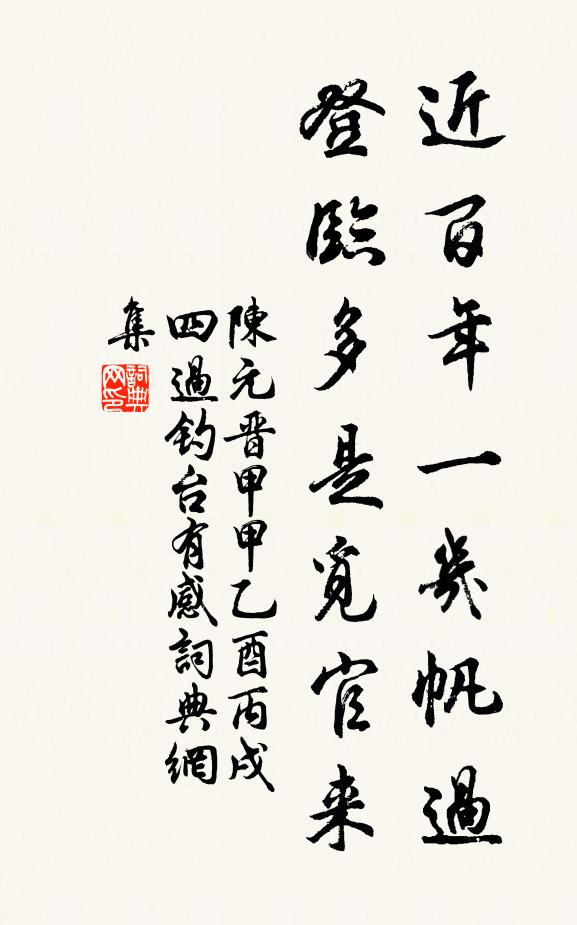 近百年一幾帆過
登臨多是覓官来
陳元晋甲甲乙酉丙戌
四過釣台有感詞典網
集
詞典
网印